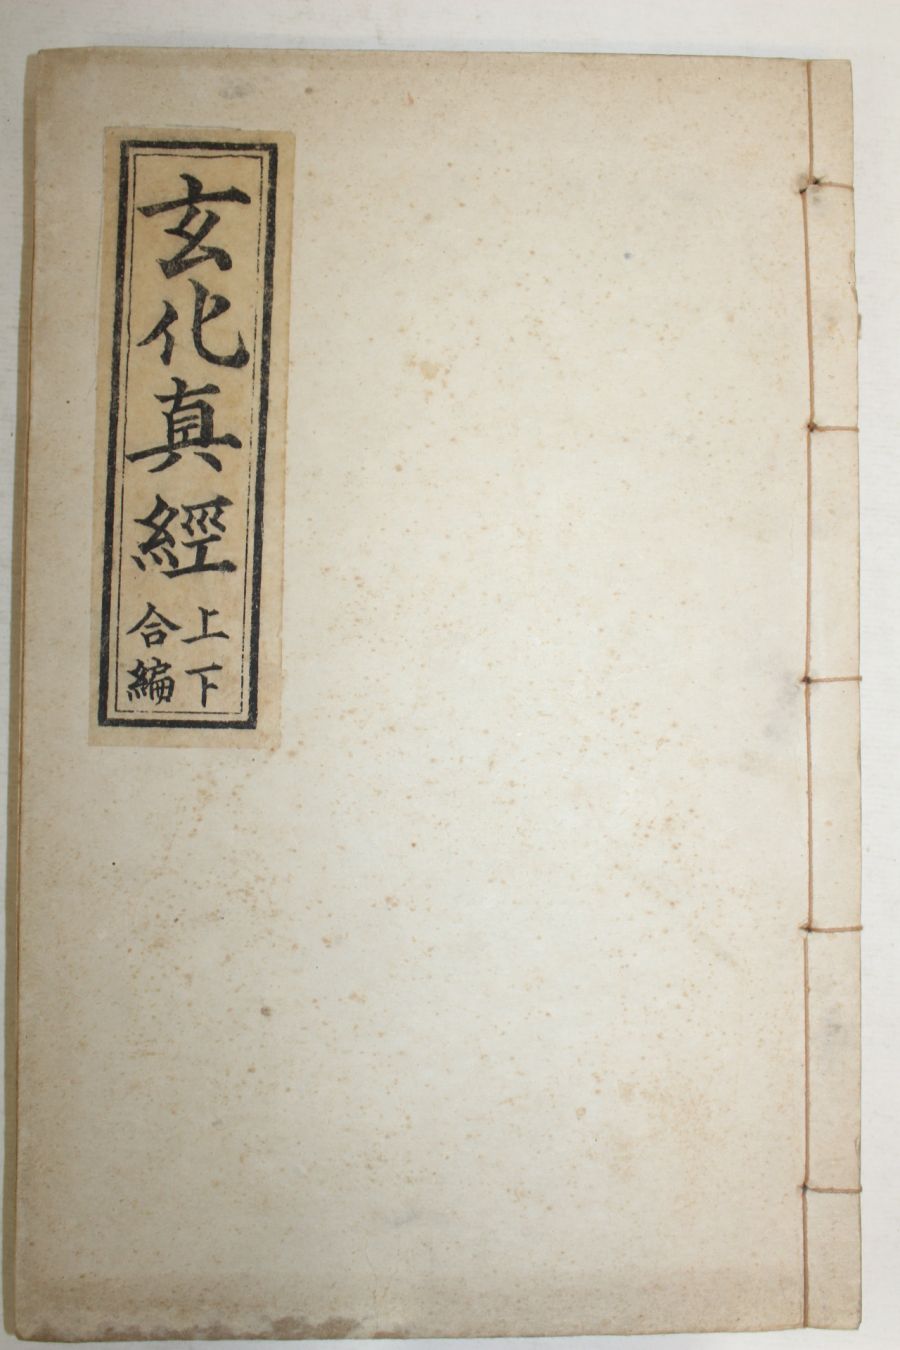 玄化真經
上下
合編